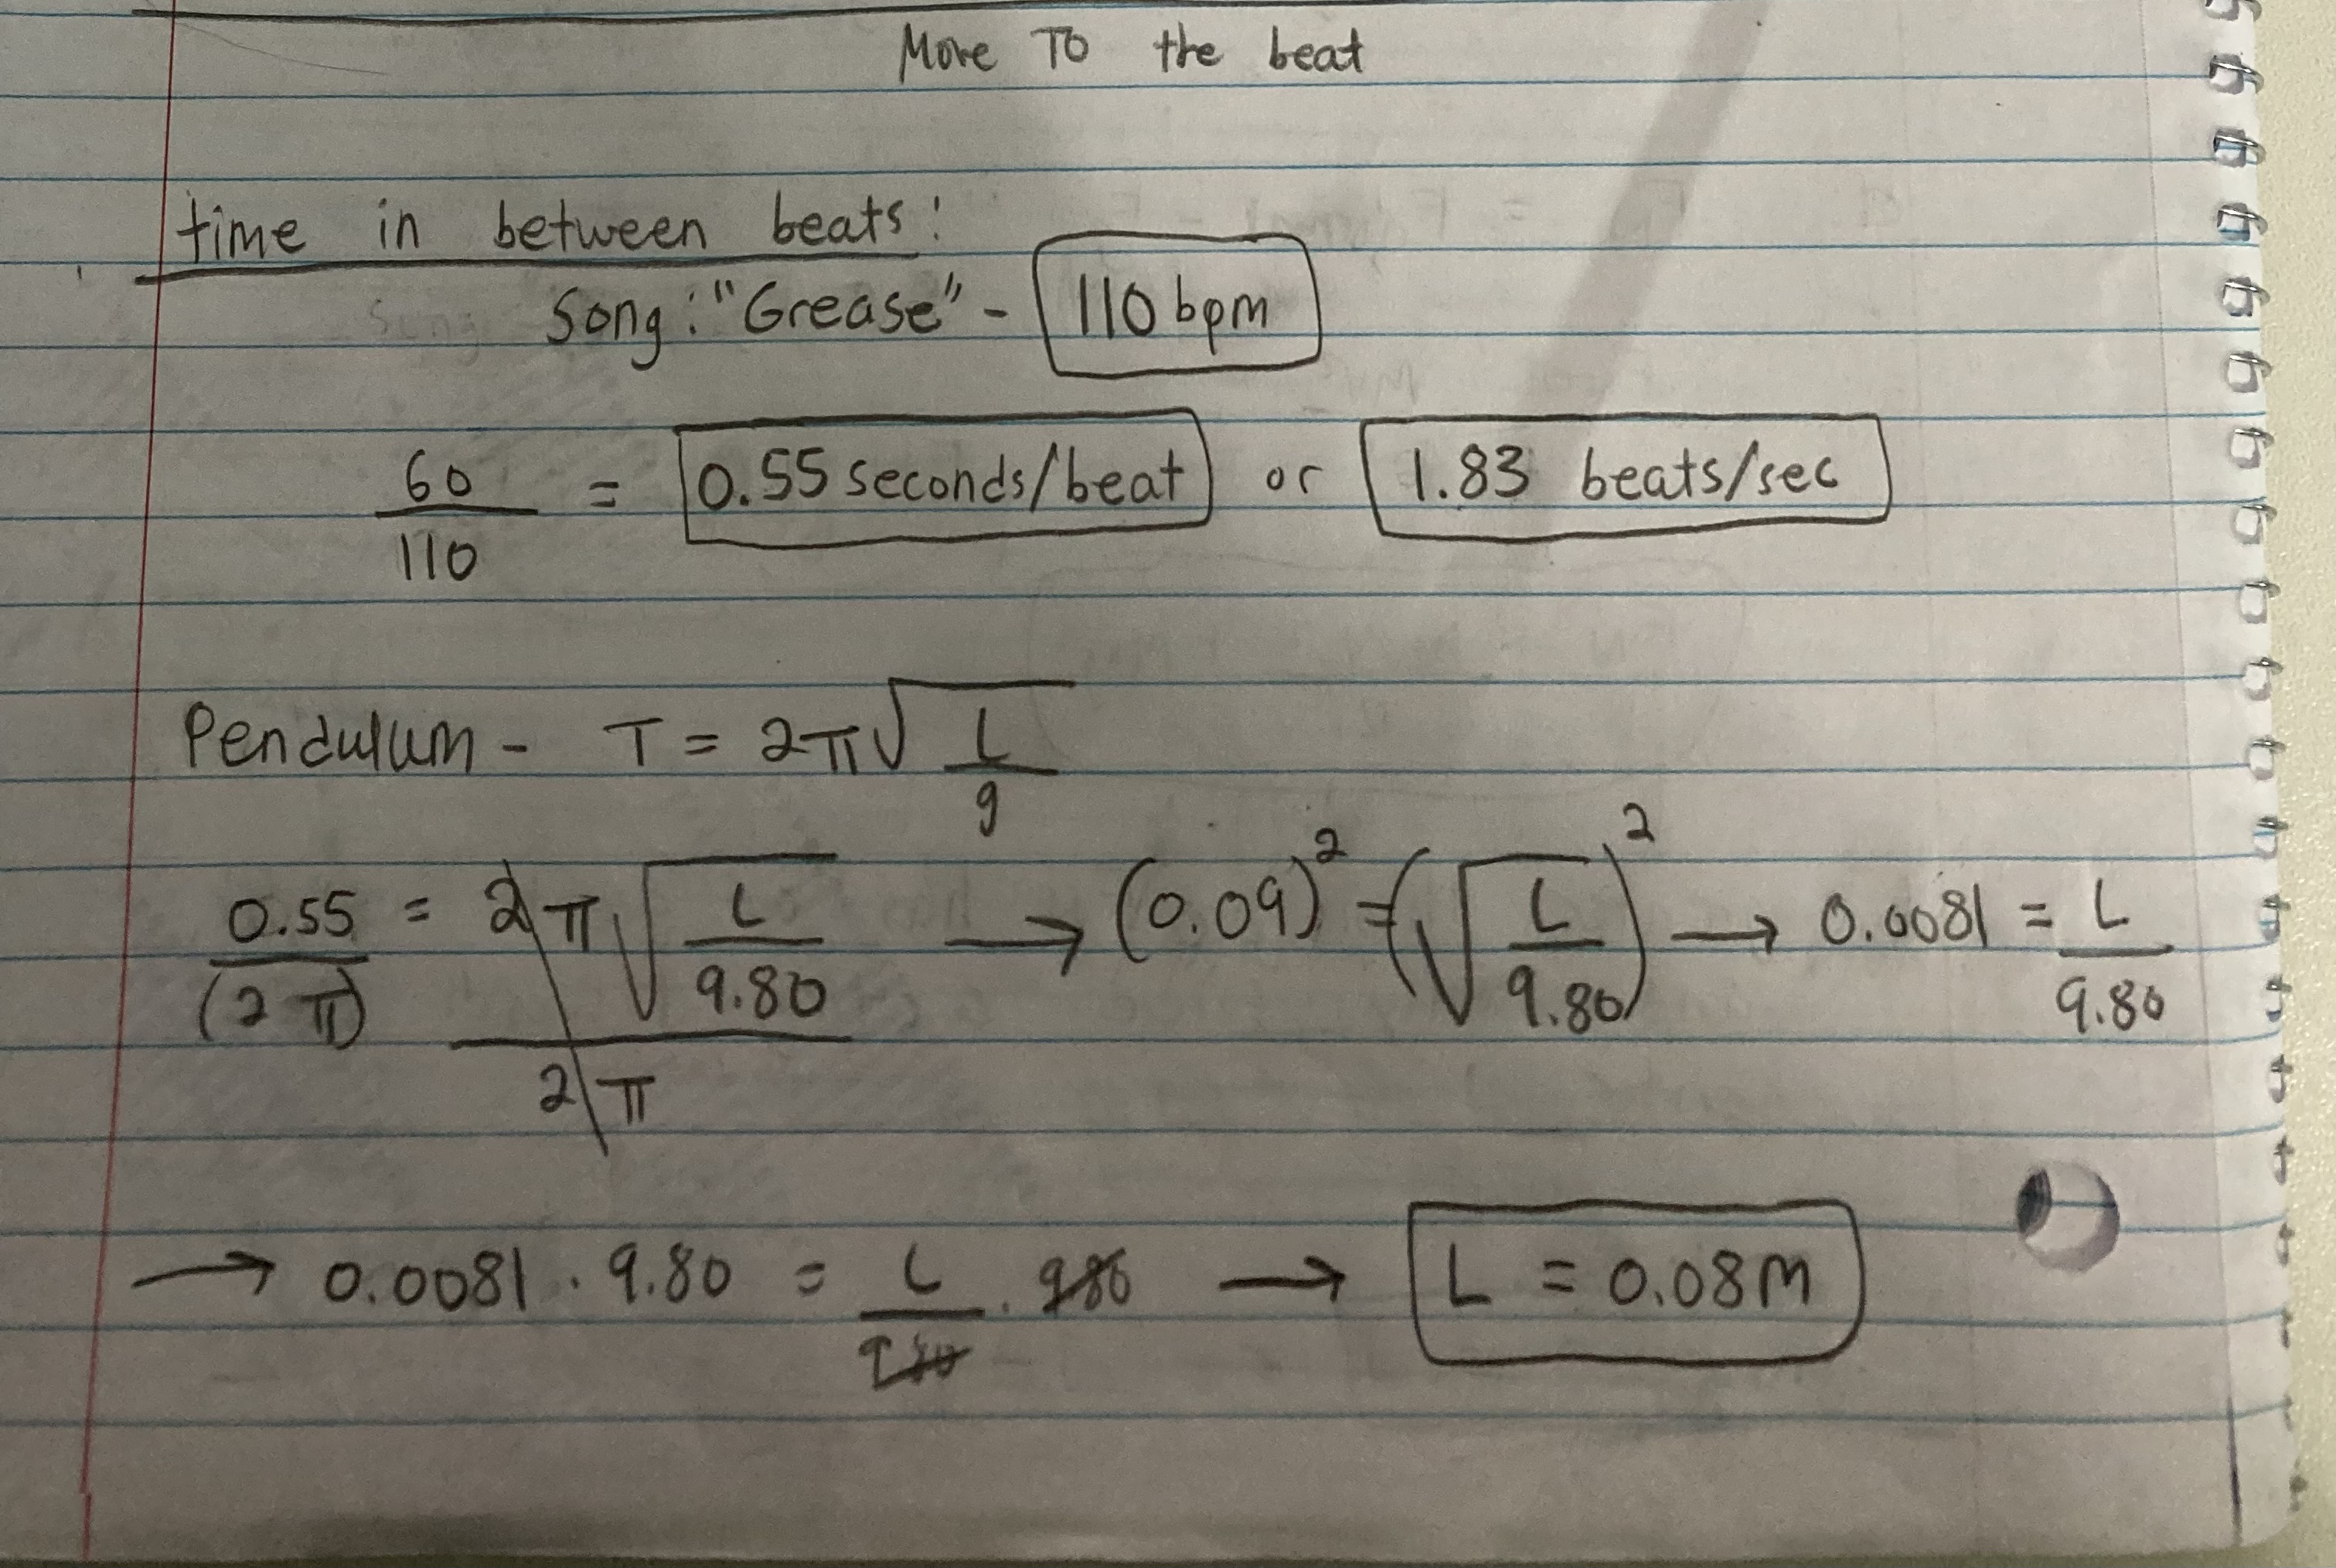 Move To the beat
time in between beats:
Song: "Grease" - 110 bpm
60/110 = 0.55 seconds/beat or 1.83 beats/sec
Pendulum - T = 2π√(L/g)
0.55/(2π) = 2π√(L/9.80)/2π → (0.09)² = (√(L/9.80))² → 0.0081 = L/9.80
→ 0.0081 · 9.80 = L/9.80 · 9.80 → L = 0.08m